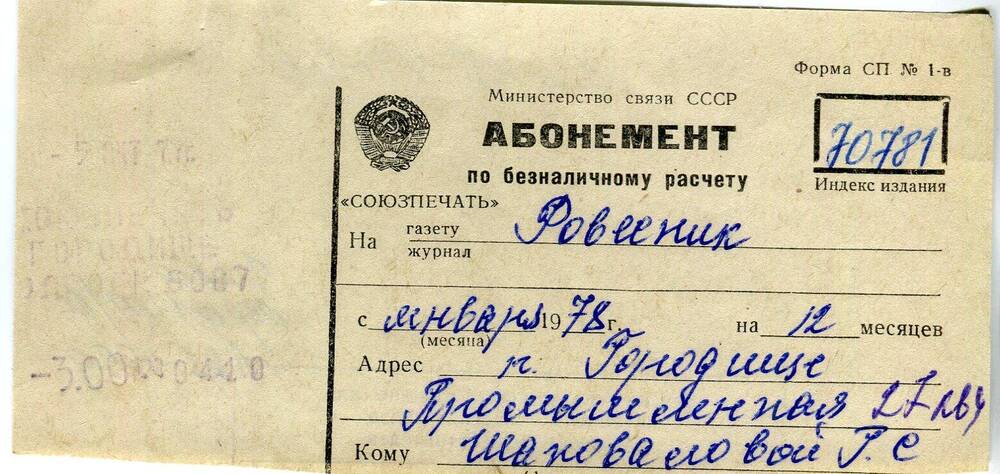 Форма СП № 1-в
Министерство связи СССР
АБОНЕМЕНТ
по безналичному расчету
70781
Индекс издания
«СОЮЗПЕЧАТЬ»
На газету журнал Ровесник
с января 1978 г. на 12 месяцев
(месяца)
Адрес г. Городище
Промышленная 27 кв 4
Кому Шаповаловой Г. С
-3.00 0410